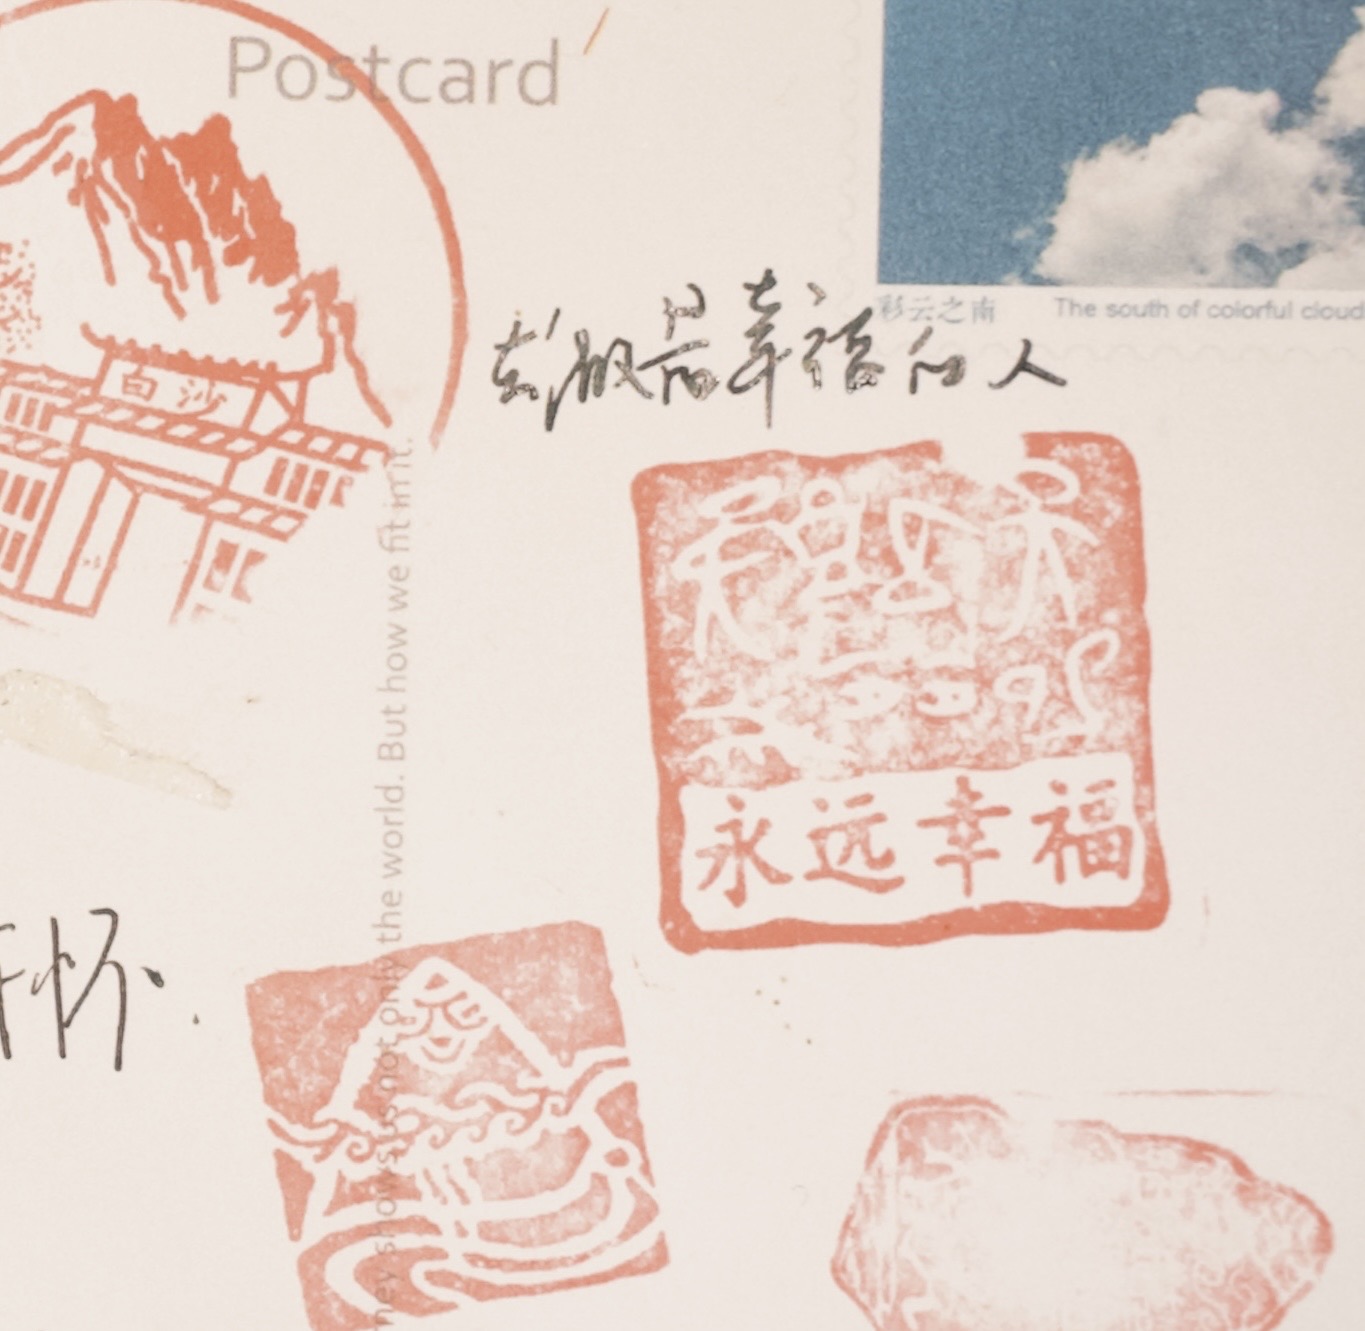 Postcard
彩云之南 The south of colorful cloud
幸福的人
白沙
They show us not only the world. But how we fit in it.
永远幸福
怀.